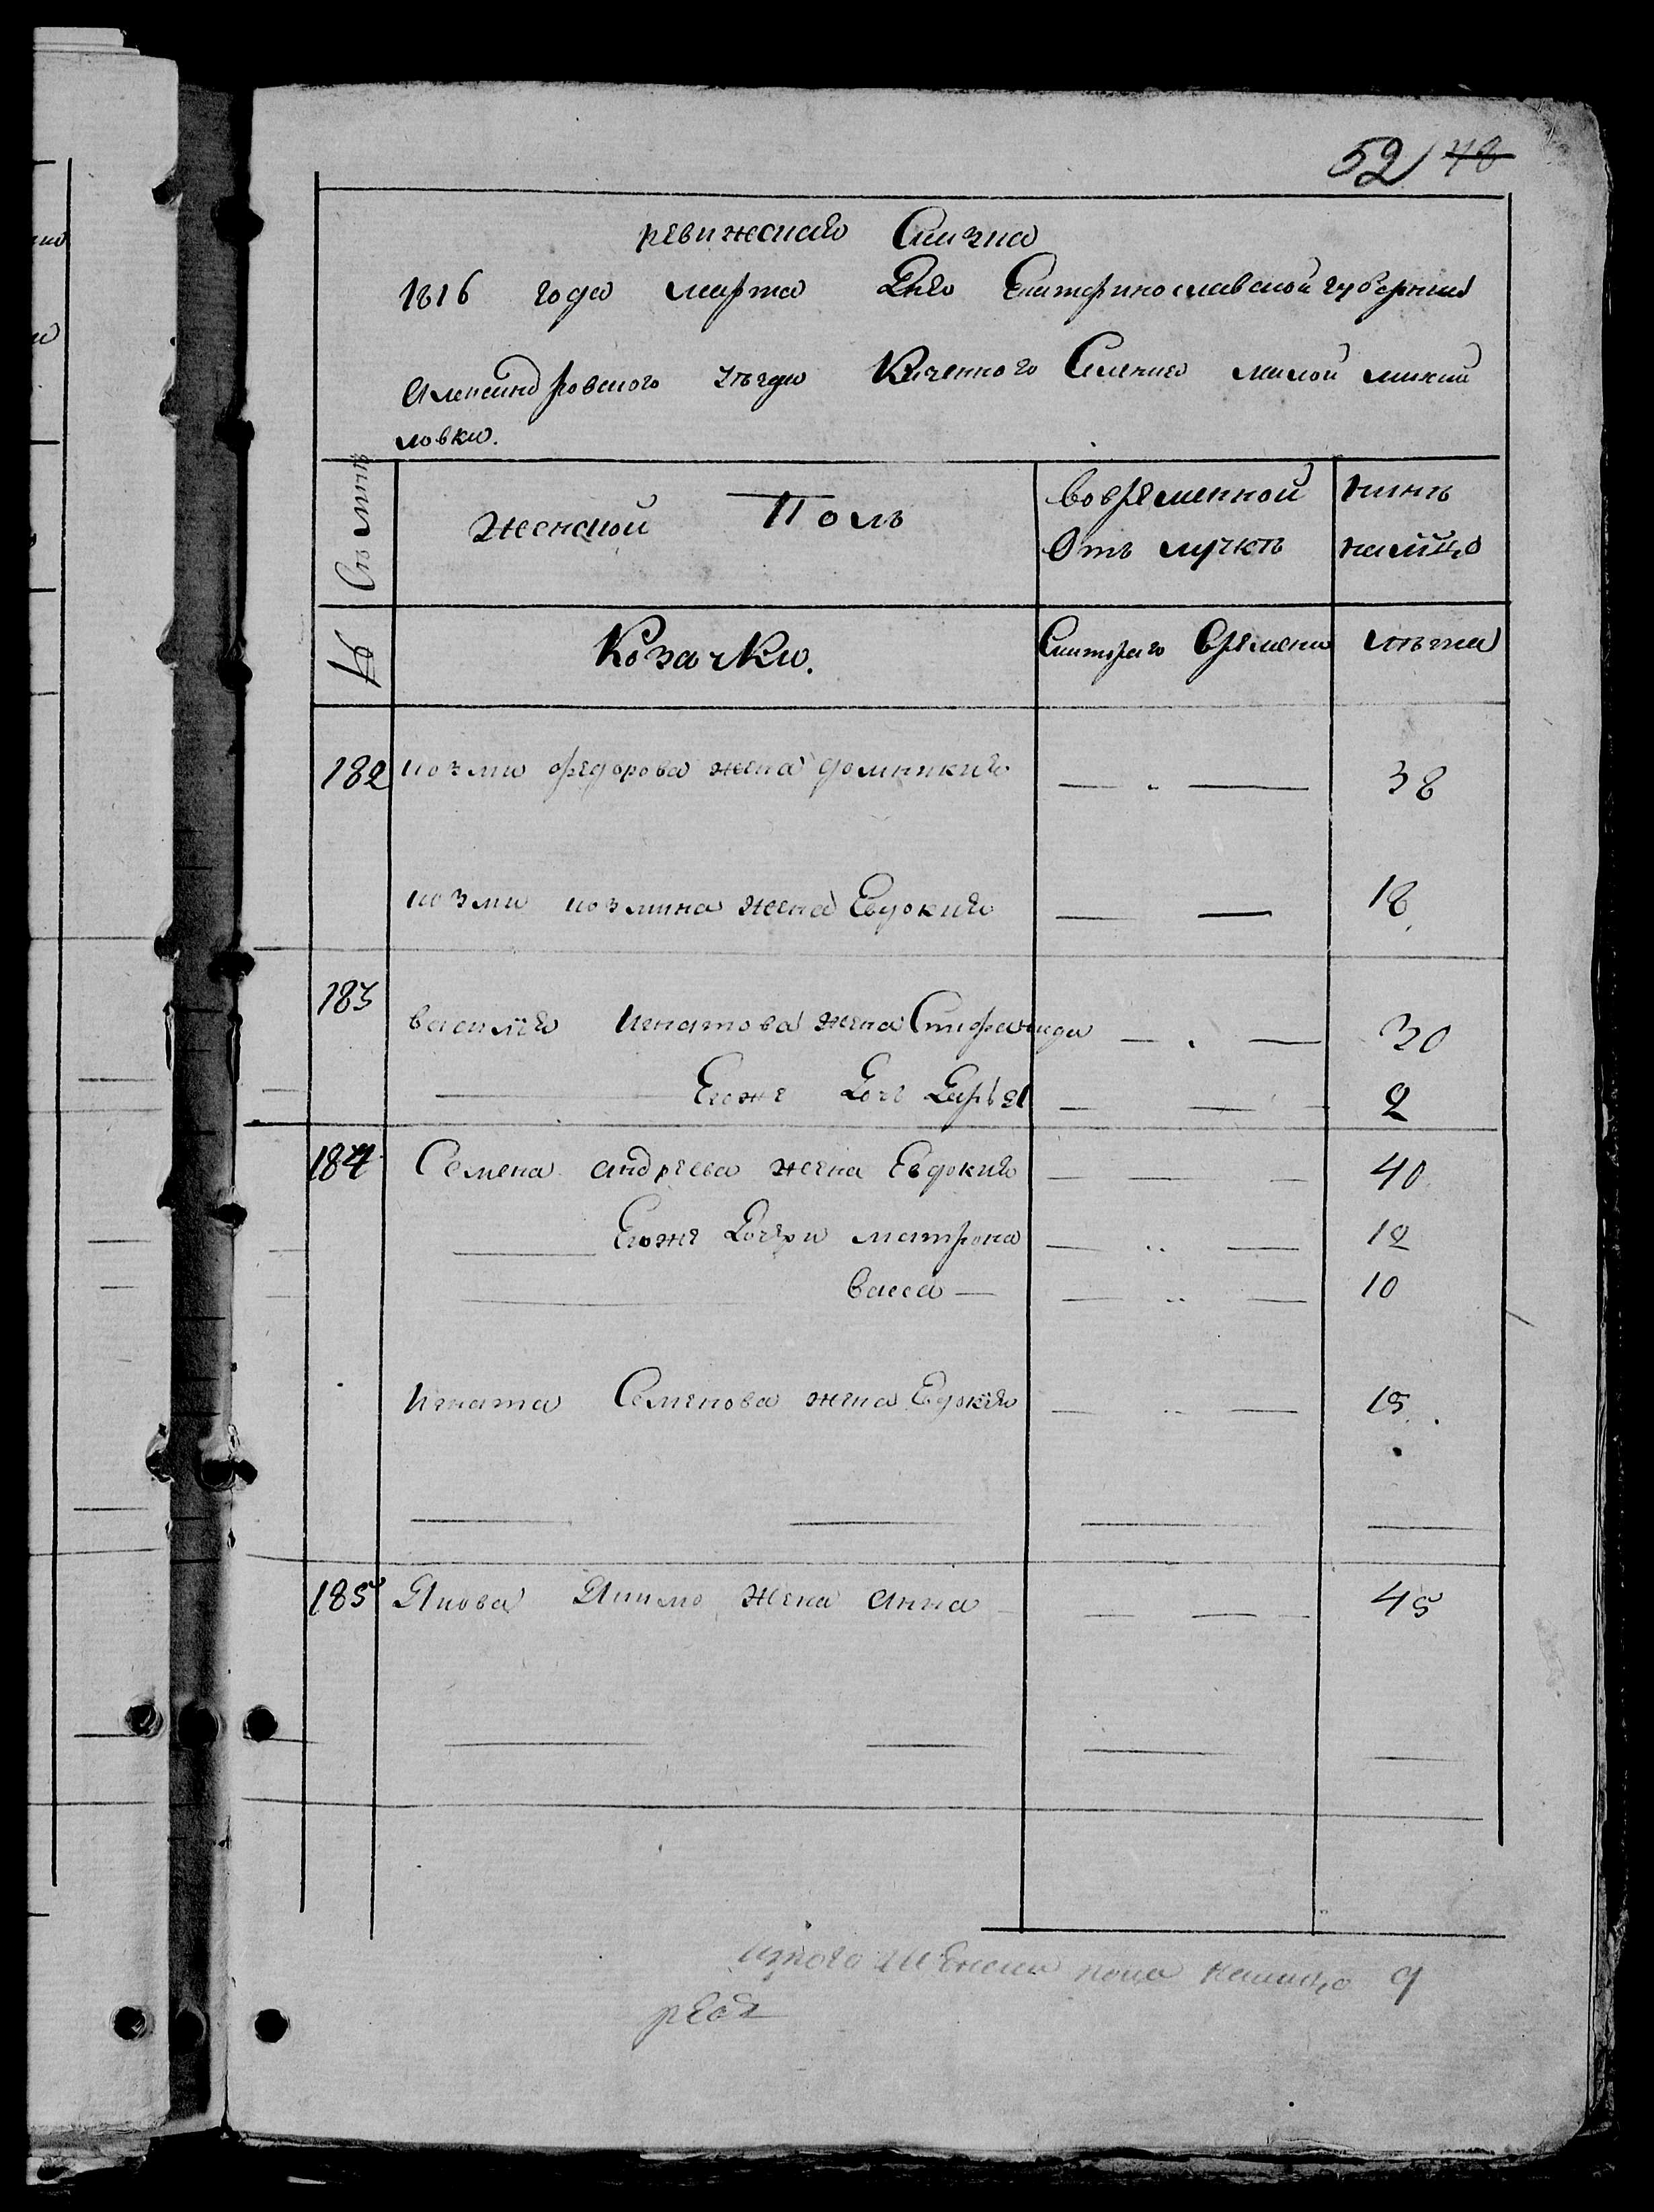 52 48
ревижская Скизка
1816 года марта Дня Екатеринославской губернии
Александровского уезда Казенного Селения малой михай
ловки.
Семьи Женской Полъ вовременной нынъ
Отъ лучкъ налицо
№ Козачки. Скотораго времени лѣта
182 козми федорова жена домникия — „ — 38
козми козмина жена Евдокия — — 18
183 василия игнатова жена Стефанида — . — 30
Егоже Доче Дарья — — 2
184 Семена андреева жена Евдокия — — — 40
Егоже Дочери матрона — „ — 12
васса — — „ — 10
игната Семенова жена Евдокия — „ — 15
185 Якова жена анна — — — 45
итого женска пола налицо 9